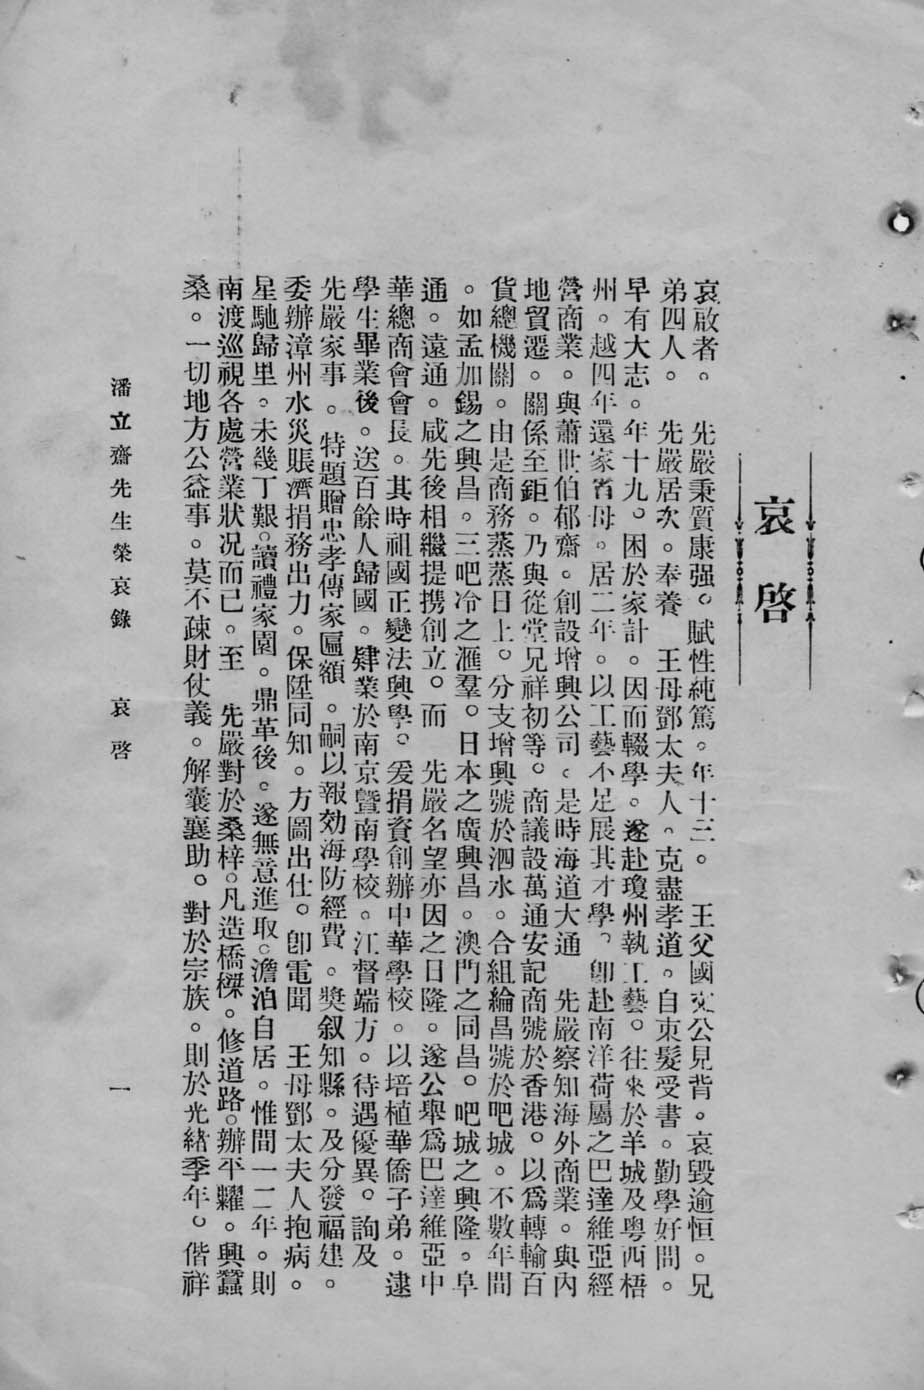 哀啓
哀啟者。　先嚴秉質康强。賦性純篤。年十三。　王父國史公見背。哀毀逾恒。兄
弟四人。　先嚴居次。奉養　王母鄧太夫人。克盡孝道。自束髮受書。勤學好問。
早有大志。年十九。困於家計。因而輟學。遂赴瓊州執工藝。往來於羊城及粤西梧
州。越四年還家省母。居二年。以工藝不足展其才學。卽赴南洋荷屬之巴達維亞經
營商業。與蕭世伯郁齋。創設增興公司。是時海道大通　先嚴察知海外商業。與內
地貿遷。關係至鉅。乃與從堂兄祥初等。商議設萬通安記商號於香港。以爲轉輸百
貨總機關。由是商務蒸蒸日上。分支增興號於泗水。合組綸昌號於吧城。不數年間
。如孟加錫之興昌。三吧冷之滙羣。日本之廣興昌。澳門之同昌。吧城之興隆。阜
通。遠通。咸先後相繼提携創立。而　先嚴名望亦因之日隆。遂公舉爲巴達維亞中
華總商會會長。其時祖國正變法興學。爰捐資創辦中華學校。以培植華僑子弟。逮
學生畢業後。送百餘人歸國。肄業於南京暨南學校。江督端方。待遇優異。詢及
先嚴家事。　特題贈忠孝傳家匾額。嗣以報効海防經費。獎叙知縣。及分發福建。
委辦漳州水災賬濟捐務出力。保陞同知。方圖出仕。卽電聞　王母鄧太夫人抱病。
星馳歸里。未幾丁艱。讀禮家園。鼎革後。遂無意進取。澹泊自居。惟間一二年。則
南渡巡視各處營業狀况而已。至　先嚴對於桑梓。凡造橋樑。修道路。辦平糶。興蠶
桑。一切地方公益事。莫不疎財仗義。解囊襄助。對於宗族。則於光緒季年。偕祥
潘立齋先生榮哀錄　哀啓　一